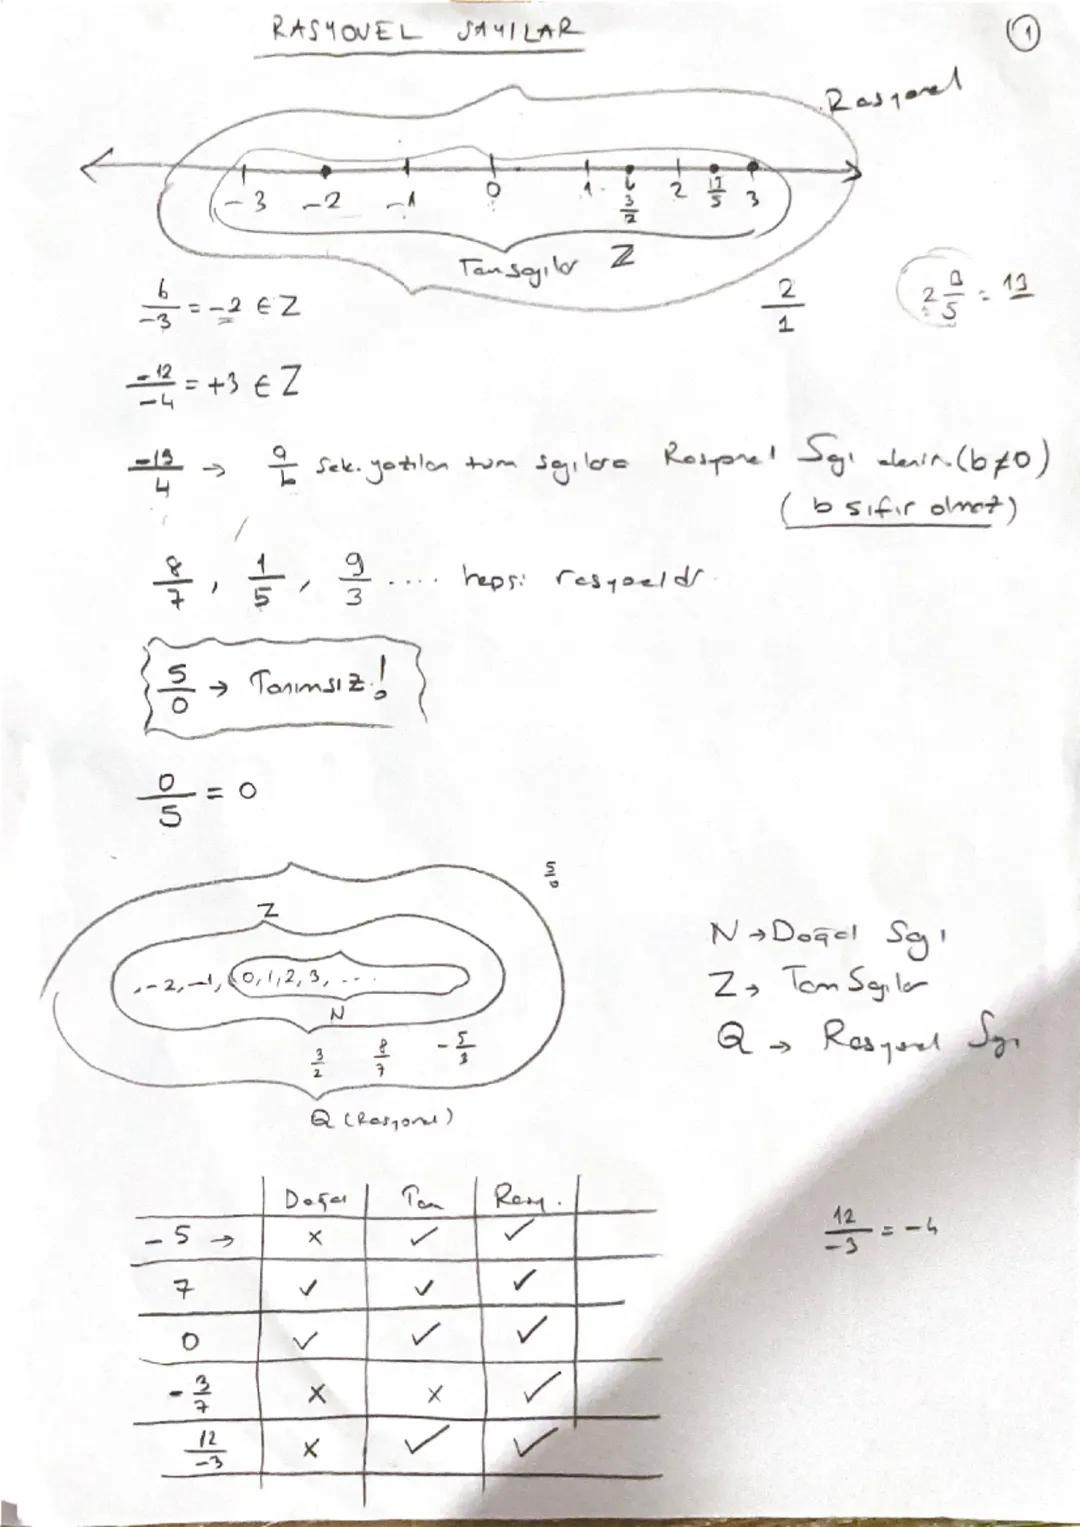 RASYONEL SAYILAR
1
Rasyonel
-3 -2 -1 0 1 3/2 2 13/5 3
Tam sayılar Z
6/-3 = -2 ∈ Z
2/1
2 3/5 = 13
-12/-4 = +3 ∈ Z
-13/4 → a/b şek. yazılan tüm sayılara Rasyonel Sayı denir. (b≠0)
(b sıfır olmaz)
8/7, 1/5, 9/3 .... hepsi rasyoneldir.
5/0 → Tanımsız!
0/5 = 0
5/0
Z
, -2, -1, 0, 1, 2, 3, ...
N
3/2 8/7 -5/3
Q (Rasyonel)
N → Doğal Sayı
Z → Tam Sayılar
Q → Rasyonel Sayı
Doğal Tam Rasy.
-5 → × ✓ ✓
7 ✓ ✓ ✓
0 ✓ ✓ ✓
-3/7 × × ✓
12/-3 × ✓ ✓
12/-3 = -4